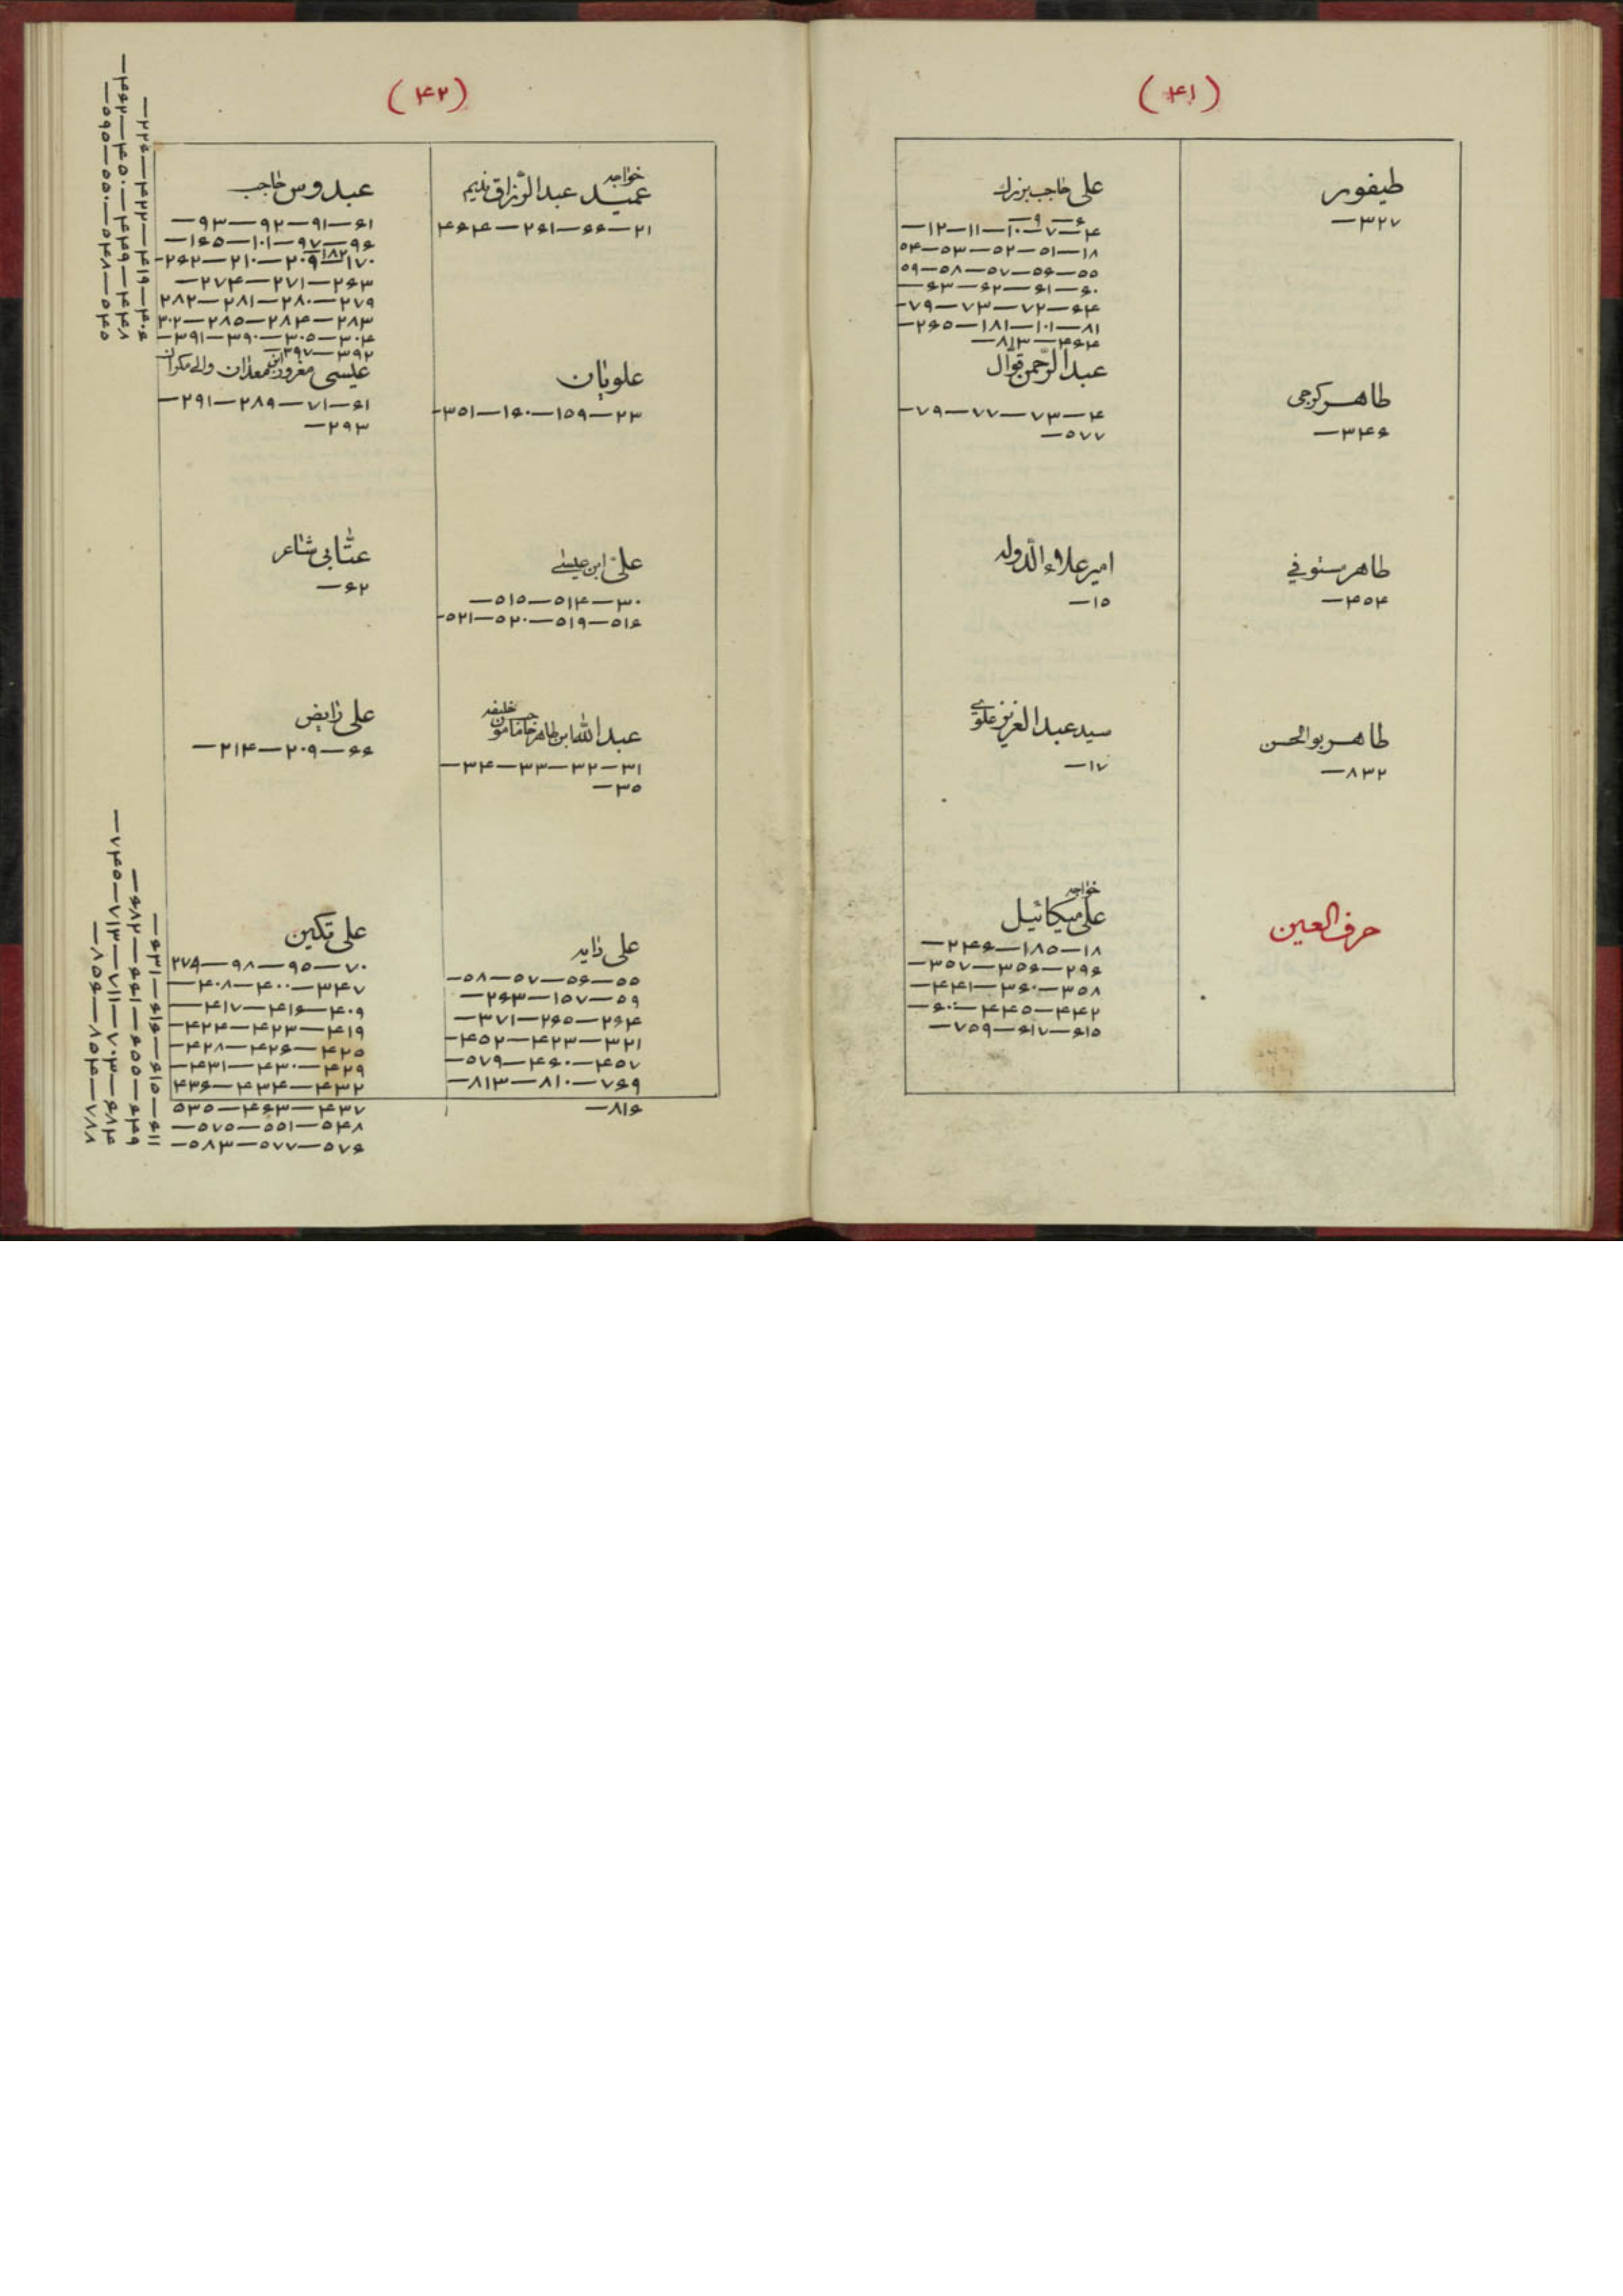 (۴۱)
طیفور
۳۲۷—
طاهر کرجی
۳۴۶—
طاهر مستوفی
۴۵۴—
طاهر بوالحسن
۸۳۲—
حرف العین
علی حاجب بزرك
۶—۹—
۴—۷—۱۰—۱۱—۱۲—
۱۸—۵۱—۵۲—۵۳—۵۴
۵۵—۵۶—۵۷—۵۸—۵۹
۶۰—۶۱—۶۲—۶۳—
۶۴—۷۲—۷۳—۷۹—
۸۱—۱۰۱—۱۸۱—۲۶۵—
۴۶۴—۸۱۳—
عبد الرّحمن قوّال
۴—۷۳—۷۷—۷۹—
۵۷۷—
امیر علاء الدّوله
۱۵—
سید عبد العزیز علوی
۱۷—
خواجه
علی میکائیل
۱۸—۱۸۵—۲۴۶—
۲۹۶—۳۵۶—۳۵۷—
۳۵۸—۳۶۰—۴۴۱—
۴۴۲—۴۴۵—۶۰۰—
۶۱۵—۶۱۷—۷۵۹—
(۴۲)
خواجه
عمید عبد الرّزاق ندیم
۲۱—۶۶—۲۶۱—۴۶۴
علویان
۲۳—۱۵۹—۱۶۰—۳۵۱—
علی ابن عیسی
۳۰—۵۱۴—۵۱۵—
۵۱۶—۵۱۹—۵۲۰—۵۲۱—
خلیفه
عبد الله ابن طاهر حاجب مامون
۳۱—۳۲—۳۳—۳۴—
۳۵—
علی دایه
۵۵—۵۶—۵۷—۵۸—
۵۹—۱۵۷—۲۶۳—
۲۶۴—۲۶۵—۳۷۱—
۳۲۱—۴۲۳—۴۵۲—
۴۵۷—۴۶۰—۵۷۹—
۷۶۹—۸۱۰—۸۱۳—
۸۱۶—
عبدوس حاجب
۶۱—۹۱—۹۲—۹۳—
۹۶—۹۷—۱۰۱—۱۶۵—
۱۷۰—۱۸۲—۲۰۹—۲۱۰—۲۶۲—
۲۶۳—۲۷۱—۲۷۴—
۲۷۹—۲۸۰—۲۸۱—۲۸۲
۲۸۳—۲۸۴—۲۸۵—۳۰۲
۳۰۴—۳۰۵—۳۹۰—۳۹۱—
۳۹۲—۳۹۷—
۴۰۶—۴۱۹—۴۲۲—۲۲۶—
۴۴۸—۴۴۹—۴۵۰—۴۶۲—
۵۴۵—۵۴۸—۵۵۰—۵۹۵—
عیسی مغرور ابن معدان والی مکران
۶۱—۷۱—۲۸۹—۲۹۱—
۲۹۳—
عتّابی شاعر
۶۲—
علی رایض
۶۶—۲۰۹—۲۱۴—
علی تکین
۷۰—۹۵—۹۸—۲۷۹
۳۴۷—۴۰۰—۴۰۸—
۴۰۹—۴۱۶—۴۱۷—
۴۱۹—۴۲۳—۴۲۴—
۴۲۵—۴۲۶—۴۲۸—
۴۲۹—۴۳۰—۴۳۱—
۴۳۲—۴۳۴—۴۳۶
۴۳۷—۴۶۳—۵۳۵
۵۴۸—۵۵۱—۵۷۵—
۵۷۶—۵۷۷—۵۸۳—
۶۱۱—۶۱۵—۶۱۶—۶۳۱—
۶۴۹—۶۵۵—۶۶۱—۶۸۲—
۶۸۴—۷۰۳—۷۱۱—۷۱۳—۷۴۵—
۷۸۸—۸۵۴—۸۵۶—